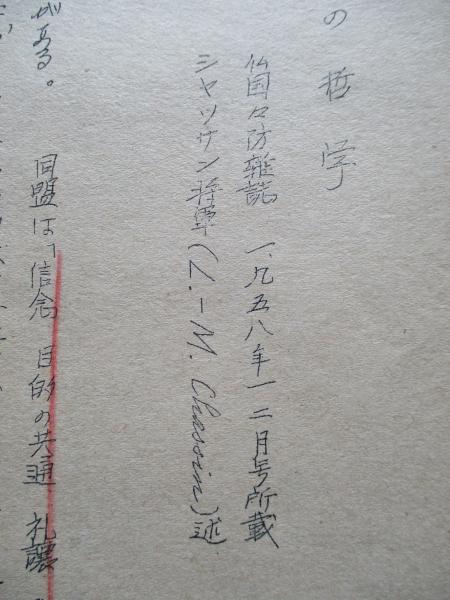 の哲学
仏国々防雑誌 一九五八年一二月号所載
シャッサン将軍(L.-M. Chassin)述
がある。
同盟は「信念 目的の共通 礼譲